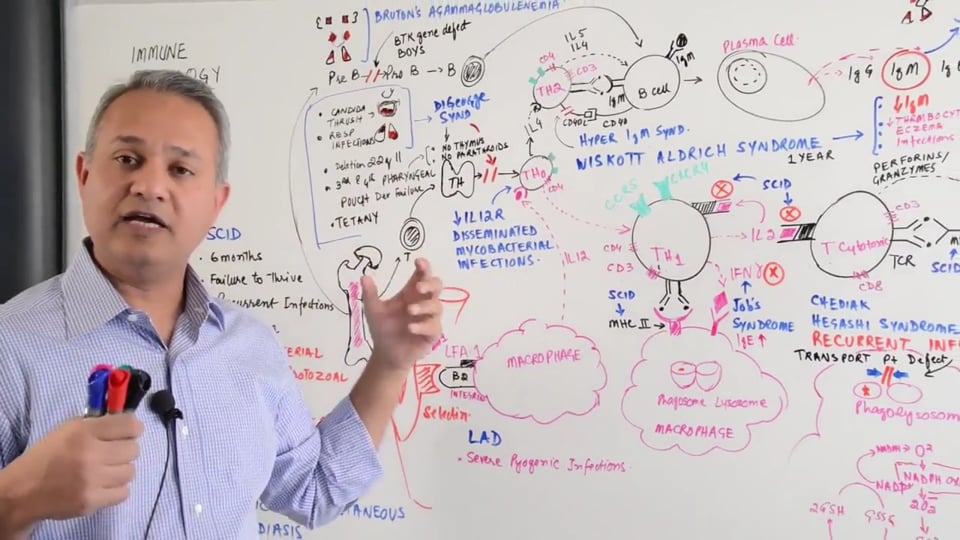 IMMUNE
BRUTON'S AGAMMAGLOBULENEMIA
BTK gene defect
BOYS
Pre B
Pro B
B
CANDIDA
THRUSH
RESP
INFECTIONS
Deletion 22q 11
3rd & 4th PHARYNGEAL
POUCH Dev Failure
TETANY
DiGeorge
SYND
NO THYMUS
NO PARATHROIDS
TH
TH0
CD4
IL4
TH2
CD4
CD3
IL5
IL4
IgM
CD40L
CD40
B cell
IgM
HYPER IgM SYND.
Plasma Cell
IgG
IgM
WISKOTT ALDRICH SYNDROME
1 YEAR
↓IgM
↓THROMBOCYT
ECZEMA
Infections
PERFORINS/
GRANZYMES
↓IL12R
DISSEMINATED
MYCOBACTERIAL
INFECTIONS.
T
IL12
CCR5
CXCR4
CD4
CD3
TH1
SCID
IL2
T Cytotoxic
CD3
CD8
TCR
SCID
SCID
MHC II
IFN γ
Job's
SYNDROME
IgE ↑
CHEDIAK
HEGASHI SYNDROME
RECURRENT INF
TRANSPORT Pt Defect
Phagolysosom
SCID
6 months
Failure to Thrive
Recurrent Infections
LFA 1
B2
INTEGRIN
Selectin
MACROPHAGE
Phagosome Lysosome
MACROPHAGE
LAD
Severe Pyogenic Infections
NADPH
O2
NADPH OX
NADP
2O2
2GSH
GSSG